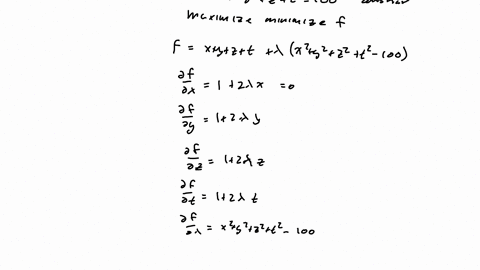 maximize minimize f
F = x+y+z+t +λ (x²+y²+z²+t²-100)
∂f/∂x = 1+2λx =0
∂f/∂y = 1+2λy
∂f/∂z = 1+2λz
∂f/∂t = 1+2λt
∂f/∂λ = x²+y²+z²+t²-100